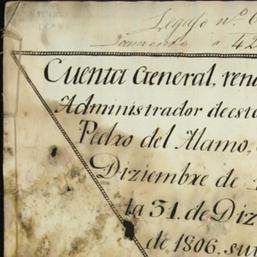 Legajo nº
42
Cuenta General, ren
Administrador de est
Pedro del Alamo,
Diziembre de
ta 31. de Diz
de 1806. su